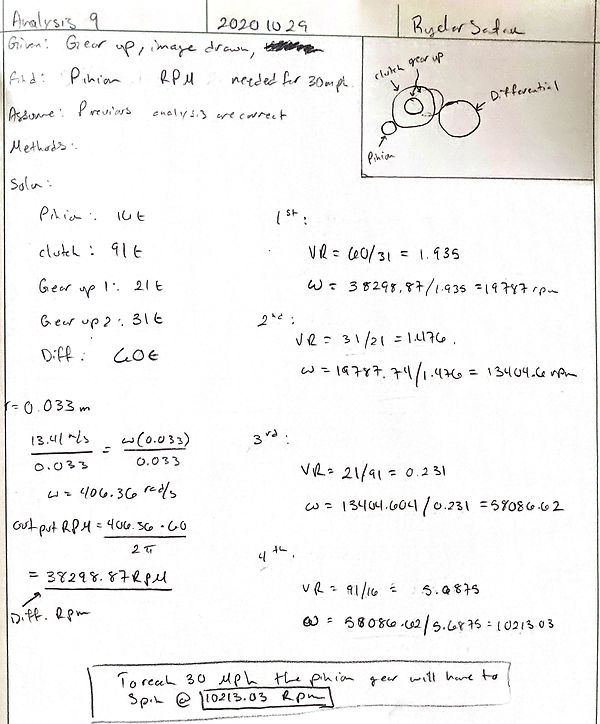 Analysis 9
2020 10 29
Ryder
Given: Gear up, image drawn,
Find: Pinion RPM needed for 30 mph
Assume: Previous analysis are correct
Methods:
Soln:
clutch gear up
Differential
Pinion
Pinion: 16t
clutch: 91t
Gear up 1: 21t
Gear up 2: 31t
Diff: 60t
r = 0.033 m
13.41 m/s / 0.033 = ω(0.033) / 0.033
ω = 406.36 rad/s
output RPM = 406.36 · 60 / 2π
= 38298.87 RPM
Diff. Rpm
1st:
VR = 60/31 = 1.935
ω = 38298.87/1.935 = 19787 rpm
2nd:
VR = 31/21 = 1.476.
ω = 19787.74/1.476 = 13404.6 rpm
3rd:
VR = 21/91 = 0.231
ω = 13404.604/0.231 = 58086.62
4th
VR = 91/16 = 5.6875
ω = 58086.62/5.6875 = 10213.03
To reach 30 Mph the pinion gear will have to
Spin @ 10213.03 Rpm